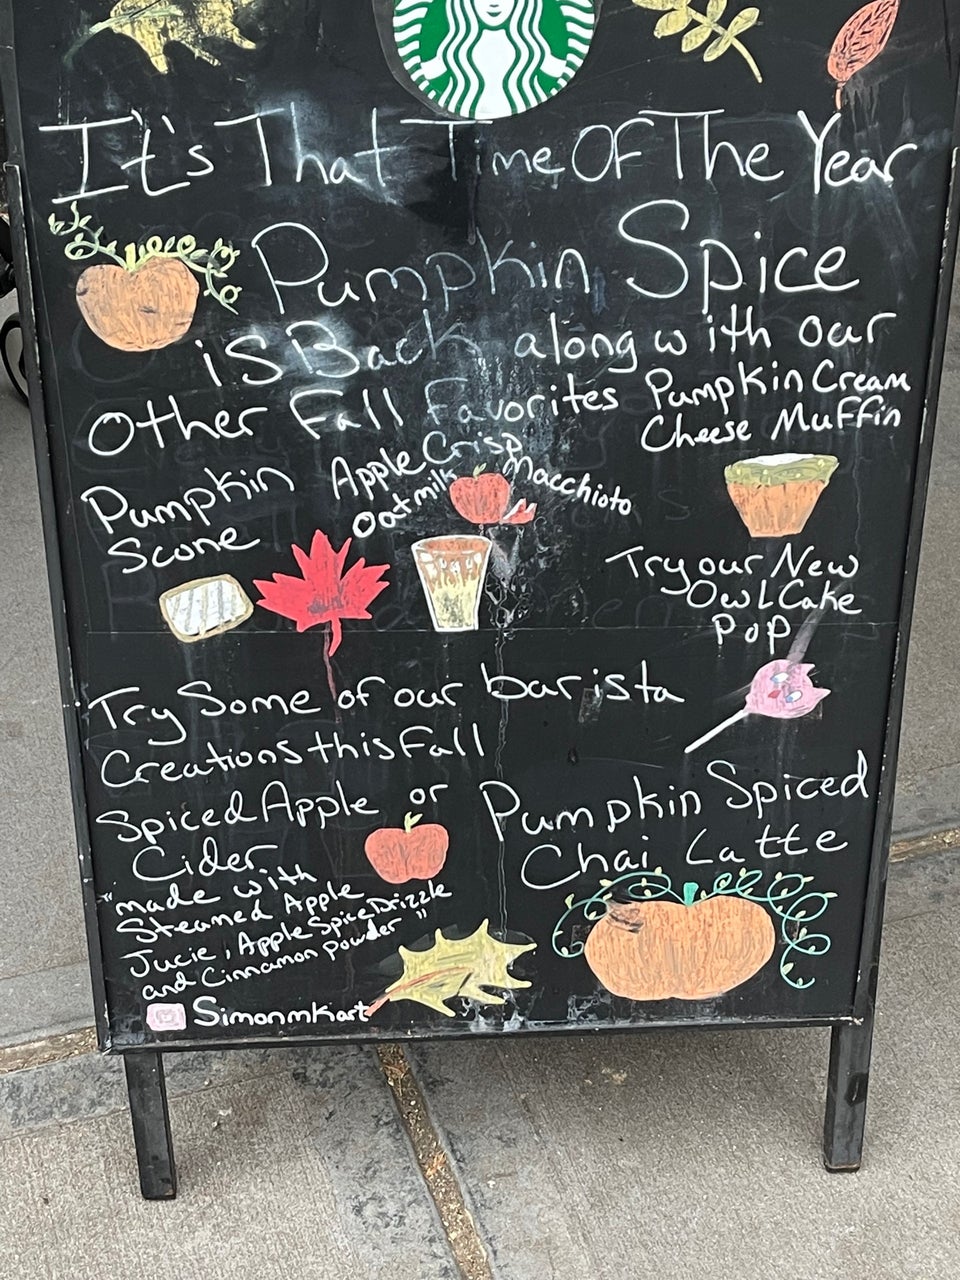 It's That Time Of The Year
Pumpkin Spice
is Back along with our
Other Fall Favorites
Pumpkin Cream
Cheese Muffin
Pumpkin
Scone
Apple Crisp
Oatmilk Macchioto
Try our New
Owl Cake
Pop
Try Some of our barista
Creations this Fall
Spiced Apple
Cider
or
Pumpkin Spiced
Chai Latte
"made with
Steamed Apple
Jucie, Apple Spice Drizzle
and Cinnamon powder"
Simonmkart